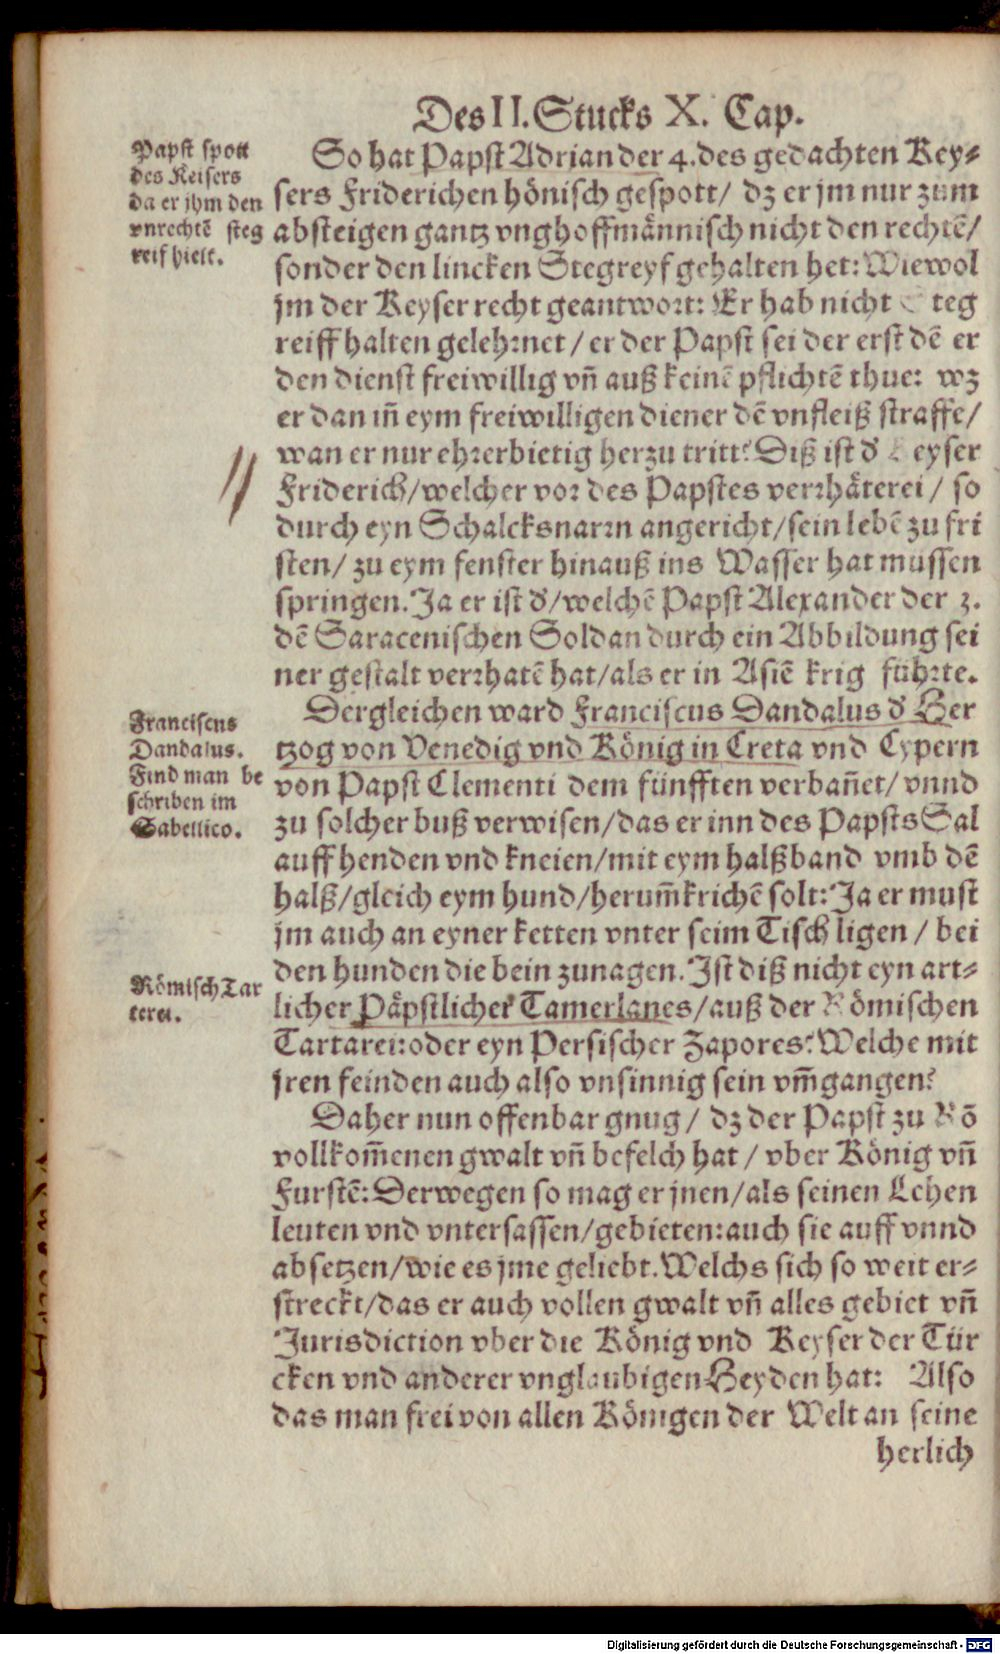 Des II. Stucks X. Cap.
Papst spott
des Keisers
da er ihm den
vnrechtē steg
reif hielt.
So hat Papst Adrian der 4. des gedachten Key⸗
sers Friderichen hönisch gespott/ dz er jm nur zum
absteigen gantz vnghoffmännisch nicht den rechtē/
sonder den lincken Stegreyf gehalten het: Wiewol
jm der Keyser recht geantwort: Er hab nicht Steg
reiff halten gelehrnet / er der Papst sei der erst dē er
den dienst freiwillig vñ auß keinē pflichtē thue: wz
er dan iñ eym freiwilligen diener dē vnfleiß straffe/
wan er nur ehrerbietig herzu tritt? Diß ist d' Keyser
Friderich/welcher vor des Papstes verrhäterei / so
durch eyn Schalcksnarrn angericht/sein lebē zu fri
sten/ zu eym fenster hinauß ins Wasser hat mussen
springen. Ja er ist d'/welchē Papst Alexander der 3.
dē Saracenischen Soldan durch ein Abbildung sei
ner gestalt verrhatē hat/als er in Asiē krig führte.
Franciscus
Dandalus.
Find man be
schriben im
Sabellico.
Dergleichen ward Franciscus Dandalus d' Her
tzog von Venedig vnd König in Creta vnd Cypern
von Papst Clementi dem fünfften verbañet/ vnnd
zu solcher buß verwisen/das er inn des Papsts Sal
auff henden vnd kneien/mit eym halßband vmb dē
halß/gleich eym hund/herum̄krichē solt: Ja er must
jm auch an eyner ketten vnter seim Tisch ligen / bei
den hunden die bein zunagen. Ist diß nicht eyn art⸗
licher Päpstlicher Tamerlanes/auß der Römischen
Tartarei: oder eyn Persischer Zapores? Welche mit
jren feinden auch also vnsinnig sein vm̄gangen?
Römisch Tar
terei.
Daher nun offenbar gnug / dz der Papst zu Rō
vollkom̄enen gwalt vñ befelch hat / vber König vñ
Furstē: Derwegen so mag er jnen/als seinen Lehen
leuten vnd vntersassen/gebieten: auch sie auff vnnd
absetzen/wie es jme geliebt. Welchs sich so weit er⸗
streckt/das er auch vollen gwalt vñ alles gebiet vñ
Jurisdiction vber die König vnd Keyser der Tür
cken vnd anderer vnglaubigen Heyden hat: Also
das man frei von allen Königen der Welt an seine
herlich
Digitalisierung gefördert durch die Deutsche Forschungsgemeinschaft - DFG